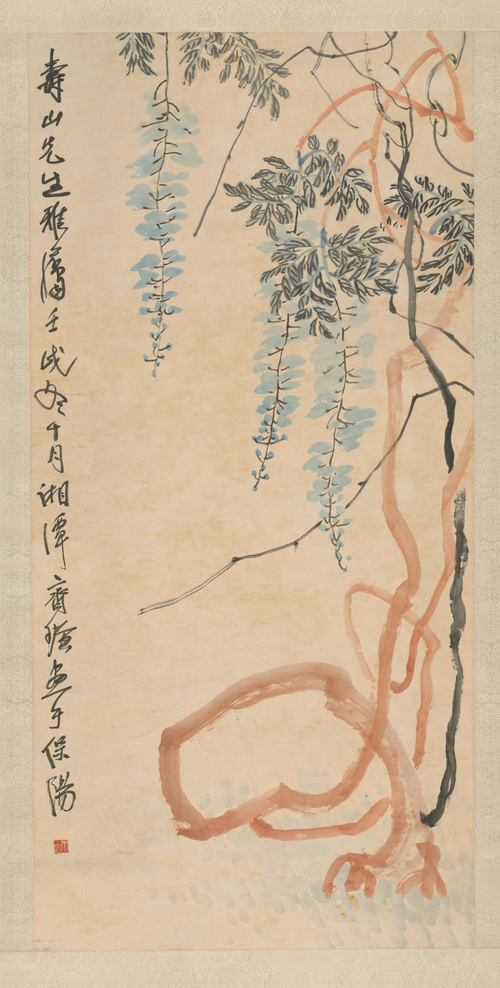 壽山先生雅壬戌冬十月湘潭齊璜畫于保陽